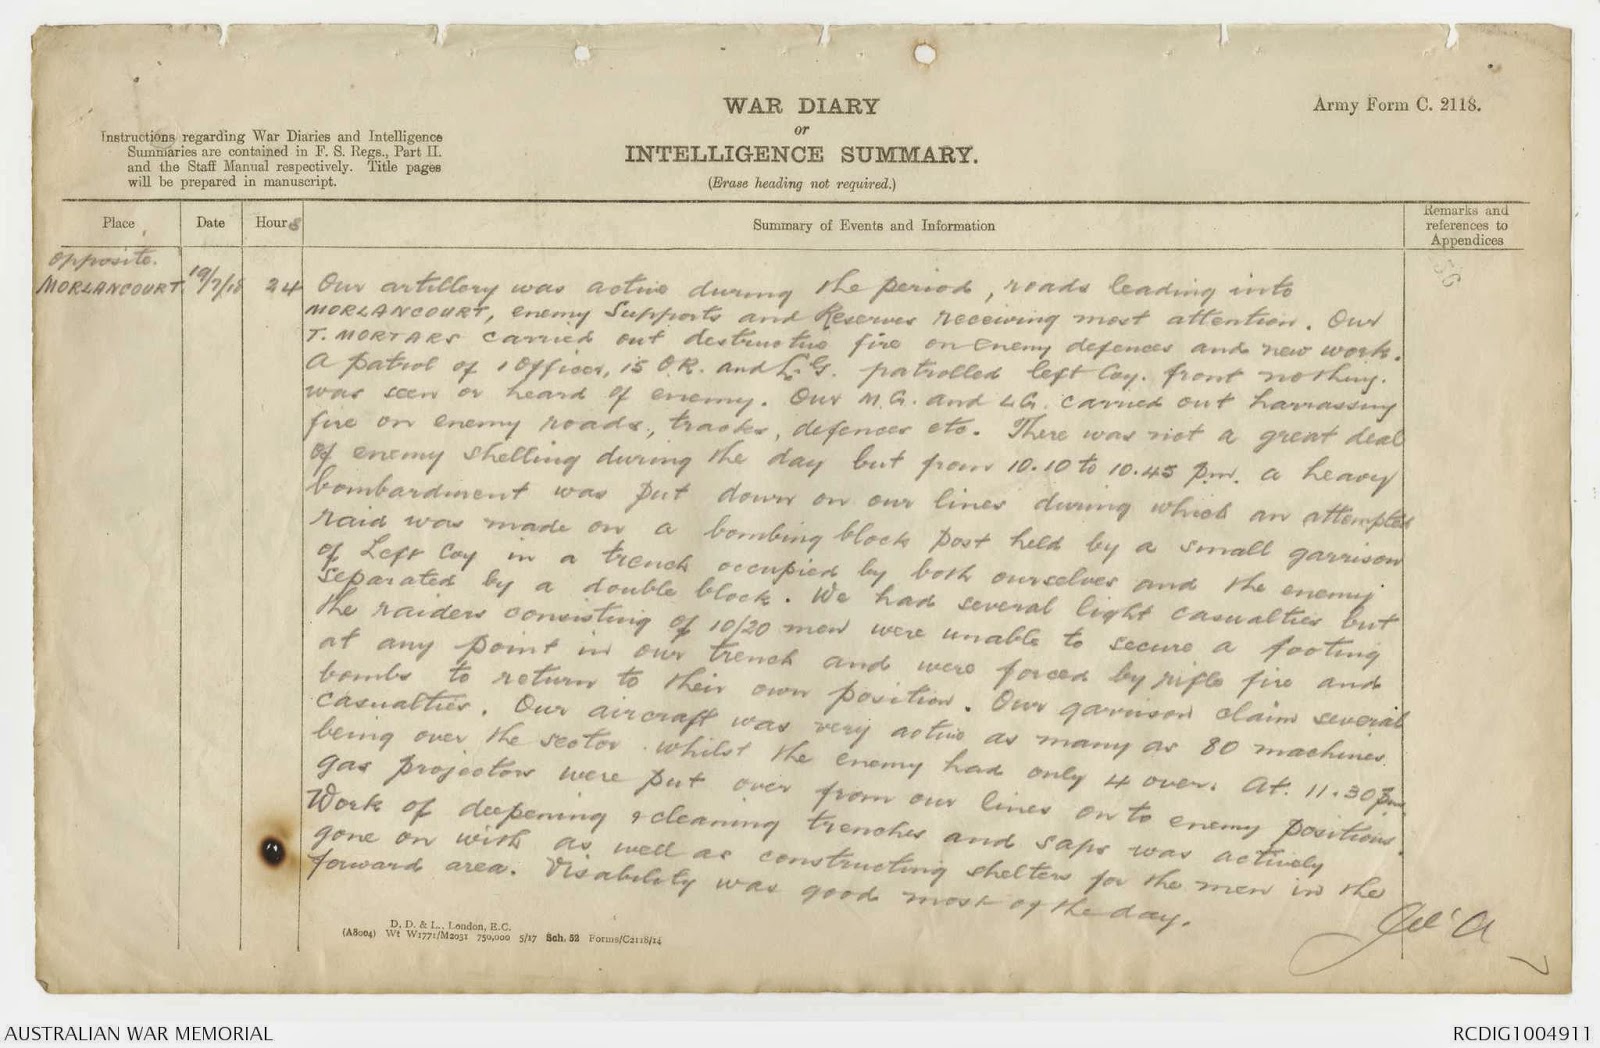 WAR DIARY
or
INTELLIGENCE SUMMARY.
(Erase heading not required.)
Army Form C. 2118.
Instructions regarding War Diaries and Intelligence
Summaries are contained in F. S. Regs., Part II.
and the Staff Manual respectively. Title pages
will be prepared in manuscript.
Place
Date
Hours
Summary of Events and Information
Remarks and
references to
Appendices
Opposite.
MORLANCOURT
19/7/18
24
Our artillery was active during the period, roads leading into
MORLANCOURT, enemy Supports and Reserves receiving most attention. Our
T. MORTARS carried out destructive fire on enemy defences and new work.
A patrol of 1 Officer, 15 O.R. and L.G. patrolled left Coy. front nothing.
was seen or heard of enemy. Our M.G. and L.G. carried out harrassing
fire on enemy roads, tracks, defences etc. There was not a great deal
of enemy shelling during the day but from 10.10 to 10.45 p.m. a heavy
bombardment was put down on our lines during which an attempted
raid was made on a bombing block post held by a small garrison
of Left Coy in a trench occupied by both ourselves and the enemy
separated by a double block. We had several light casualties but
the raiders consisting of 10/20 men were unable to secure a footing
at any point in our trench and were forced by rifle fire and
bombs to return to their own position. Our garrison claim several
casualties. Our aircraft was very active as many as 80 machines.
being over the sector. whilst the enemy had only 4 over. At. 11.30 pm
gas projectors were put over from our lines on to enemy positions.
Work of deepening & cleaning trenches and saps was actively
gone on with as well as constructing shelters for the men in the
forward area. Visability was good most of the day.
D. D. & L., London, E.C.
(A8004) Wt W1771/M2031 750,000 5/17 Sch. 52 Forms/C2118/14
AUSTRALIAN WAR MEMORIAL
RCDIG1004911